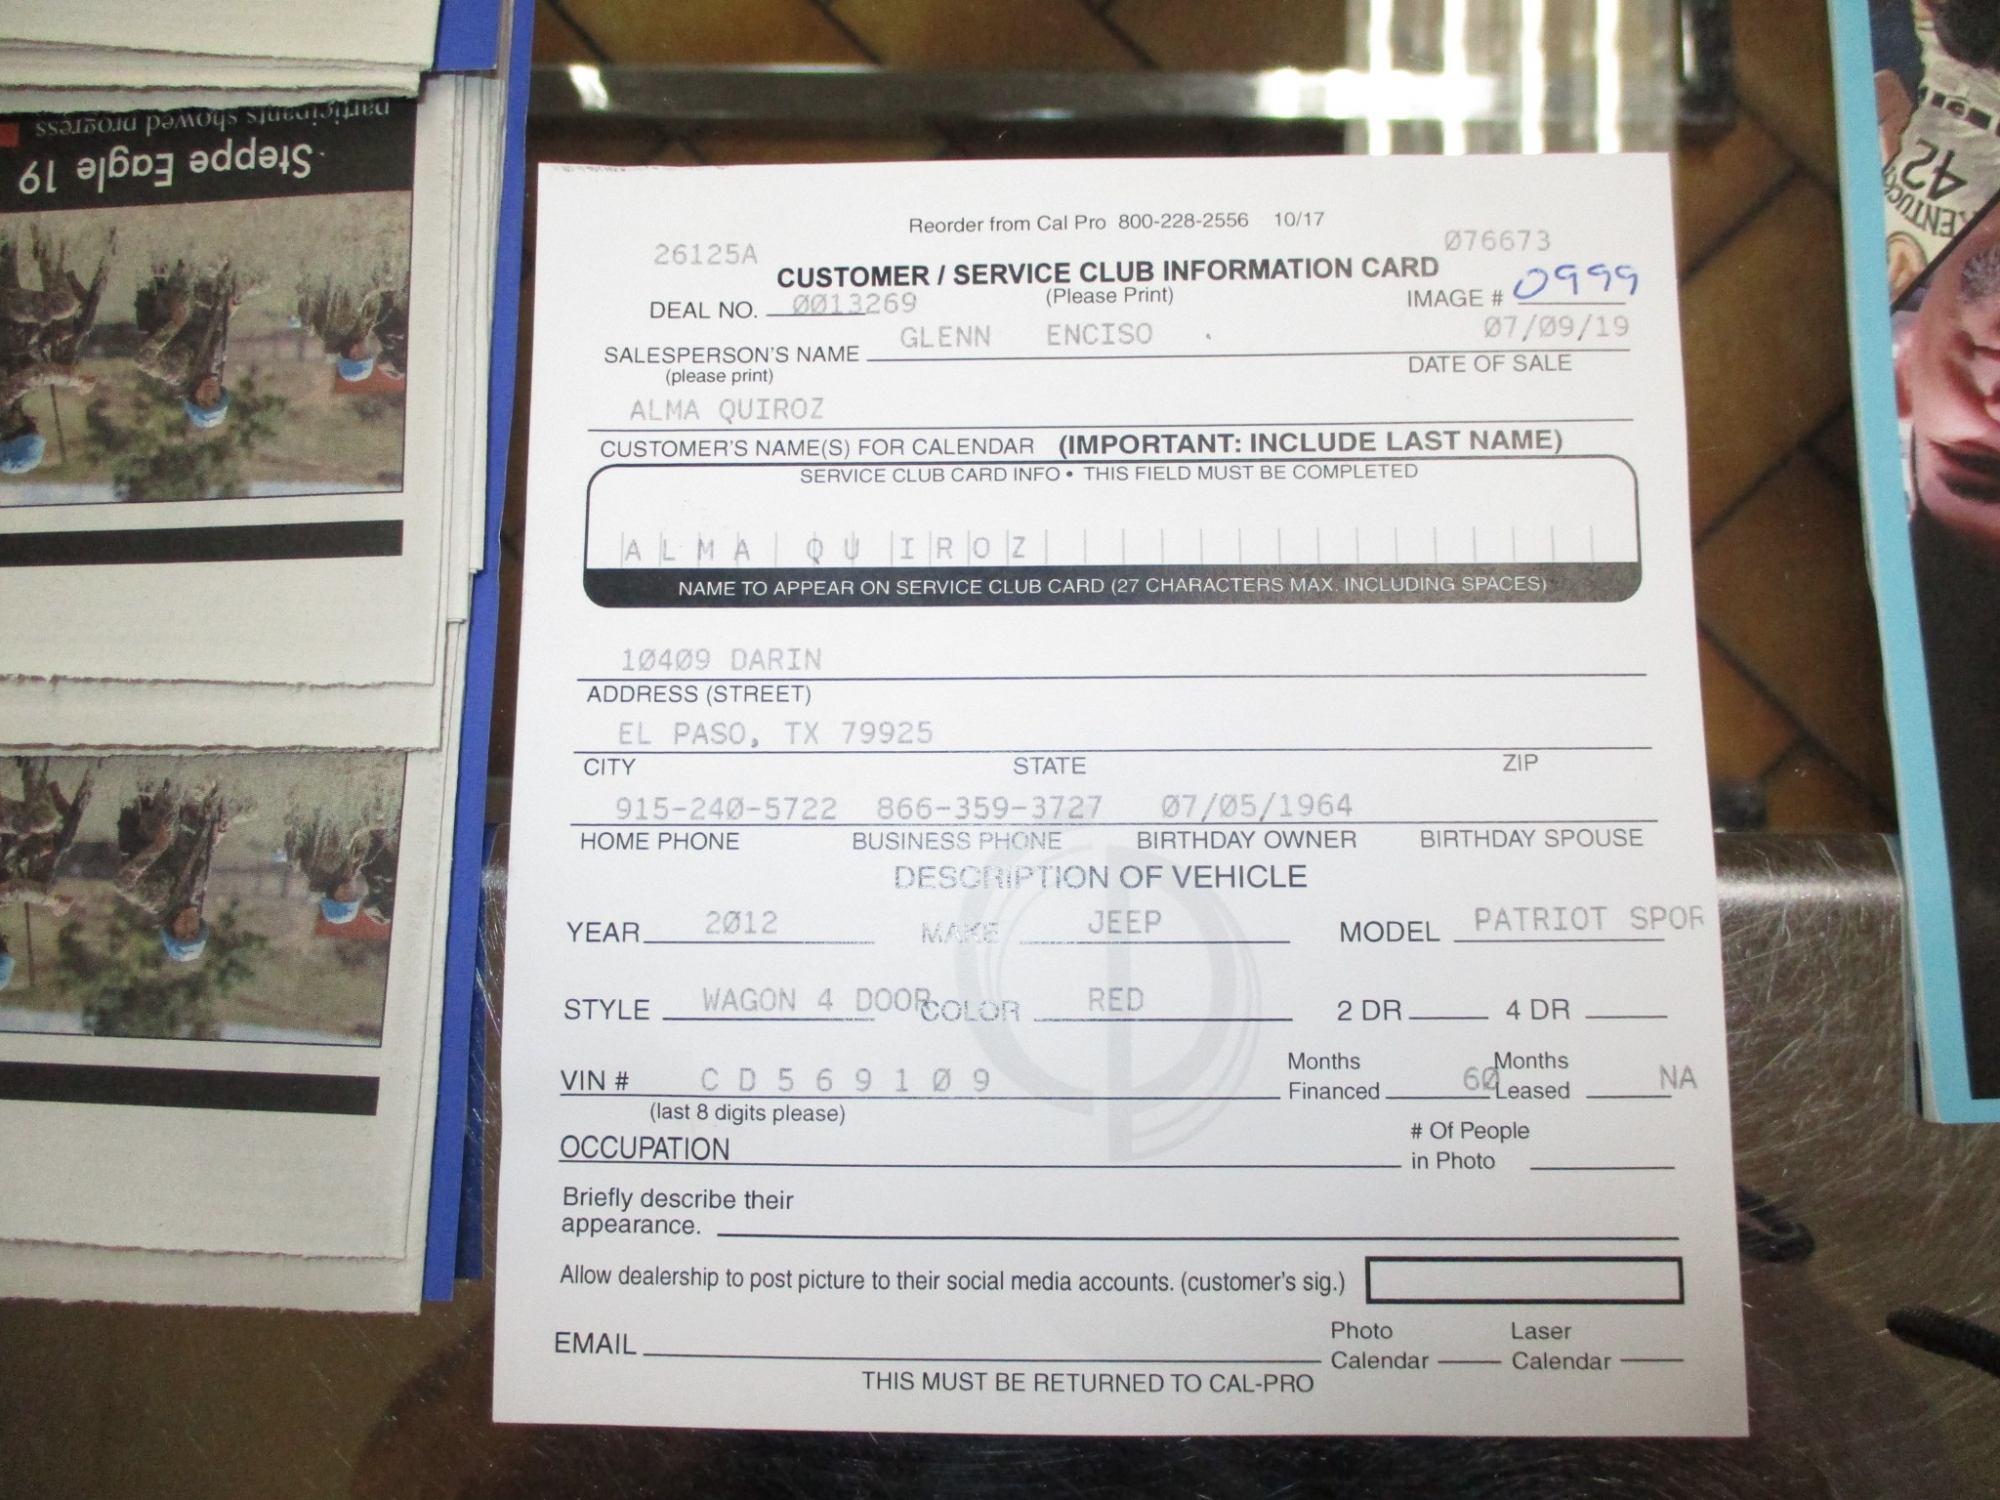 participants showed progress
Steppe Eagle 19
42
Reorder from Cal Pro 800-228-2556 10/17
26125A
076673
CUSTOMER / SERVICE CLUB INFORMATION CARD
(Please Print)
DEAL NO. 0013269
IMAGE # 0999
SALESPERSON'S NAME GLENN ENCISO
07/09/19
(please print)
DATE OF SALE
ALMA QUIROZ
CUSTOMER'S NAME(S) FOR CALENDAR (IMPORTANT: INCLUDE LAST NAME)
SERVICE CLUB CARD INFO • THIS FIELD MUST BE COMPLETED
ALMA QUIROZ
NAME TO APPEAR ON SERVICE CLUB CARD (27 CHARACTERS MAX. INCLUDING SPACES)
10409 DARIN
ADDRESS (STREET)
EL PASO, TX 79925
CITY STATE ZIP
915-240-5722 866-359-3727 07/05/1964
HOME PHONE BUSINESS PHONE BIRTHDAY OWNER BIRTHDAY SPOUSE
DESCRIPTION OF VEHICLE
YEAR 2012 MAKE JEEP MODEL PATRIOT SPOR
STYLE WAGON 4 DOOR COLOR RED 2 DR 4 DR
VIN # CD569109 Months Financed 60 Months Leased NA
(last 8 digits please)
OCCUPATION # Of People in Photo
Briefly describe their
appearance.
Allow dealership to post picture to their social media accounts. (customer's sig.)
EMAIL Photo Calendar Laser Calendar
THIS MUST BE RETURNED TO CAL-PRO